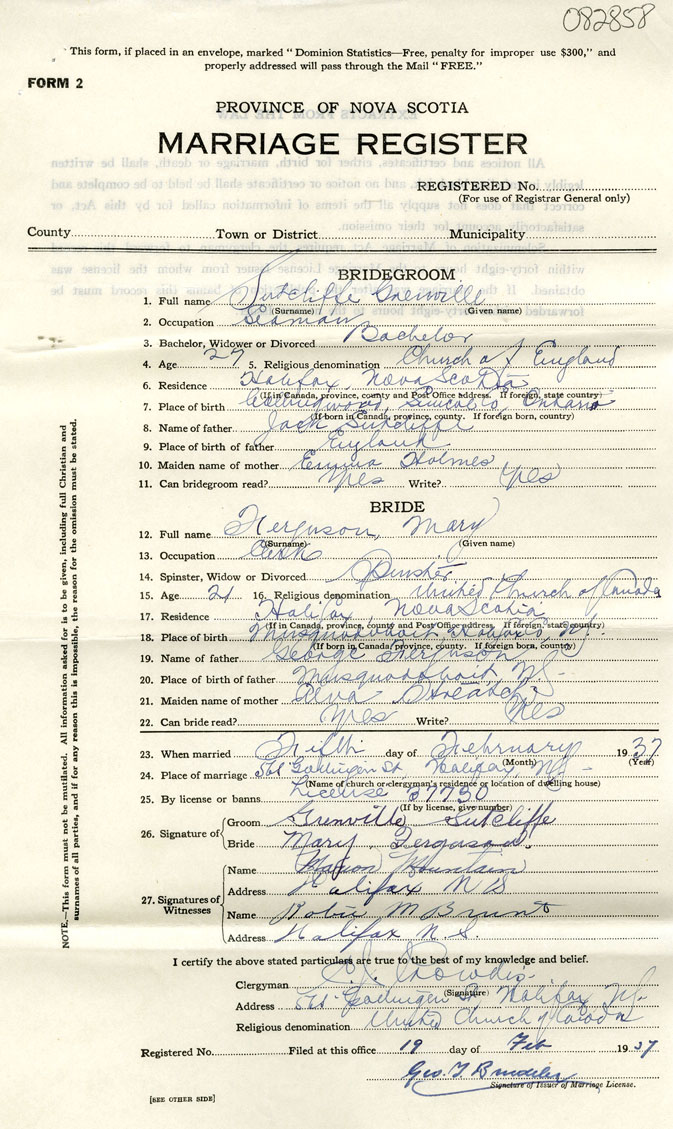 082858
This form, if placed in an envelope, marked "Dominion Statistics—Free, penalty for improper use $300," and
properly addressed will pass through the Mail "FREE."
FORM 2
PROVINCE OF NOVA SCOTIA
MARRIAGE REGISTER
REGISTERED No.
(For use of Registrar General only)
County Town or District Municipality
BRIDEGROOM
1. Full name Sutcliffe Grenville
(Surname) (Given name)
2. Occupation Seaman
3. Bachelor, Widower or Divorced Bachelor
4. Age 27 5. Religious denomination Church of England
6. Residence Halifax, Nova Scotia
(If in Canada, province, county and Post Office address. If foreign, state country)
7. Place of birth Collingwood, Simcoe Co, Ontario
(If born in Canada, province, county. If foreign born, country)
8. Name of father Jack Sutcliffe
9. Place of birth of father England
10. Maiden name of mother Emma Holmes
11. Can bridegroom read? Yes Write? Yes
BRIDE
12. Full name Ferguson, Mary
(Surname) (Given name)
13. Occupation
14. Spinster, Widow or Divorced Spinster
15. Age 21 16. Religious denomination United Church of Canada
17. Residence Halifax, Nova Scotia
(If in Canada, province, county and Post Office address. If foreign, state country)
18. Place of birth Musquodoboit, Halifax Co, N.S.
(If born in Canada, province, county. If foreign born, country)
19. Name of father George Ferguson
20. Place of birth of father Musquodoboit, N.S.
21. Maiden name of mother Alva
22. Can bride read? Yes Write? Yes
23. When married Fifth day of February 1937
(Month) (Year)
24. Place of marriage Gottingen St. Halifax, N.S.
(Name of church or clergyman's residence or location of dwelling house)
25. By license or banns License 37730
(If by license, give number)
26. Signature of
Groom Grenville Sutcliffe
Bride Mary Ferguson
27. Signatures of Witnesses
Name Marion Mountain
Address Halifax N S
Name Robie M Brunt
Address Halifax N.S.
I certify the above stated particulars are true to the best of my knowledge and belief.
Clergyman
(Signature)
Address Gottingen St. Halifax N.S.
Religious denomination United Church of Canada
Registered No. Filed at this office 19 day of Feb 1937
Geo. T.
Signature of Issuer of Marriage License.
[SEE OTHER SIDE]
NOTE.—This form must not be mutilated. All information asked for is to be given, including full Christian and
surnames of all parties, and if for any reason this is impossible, the reason for the omission must be stated.